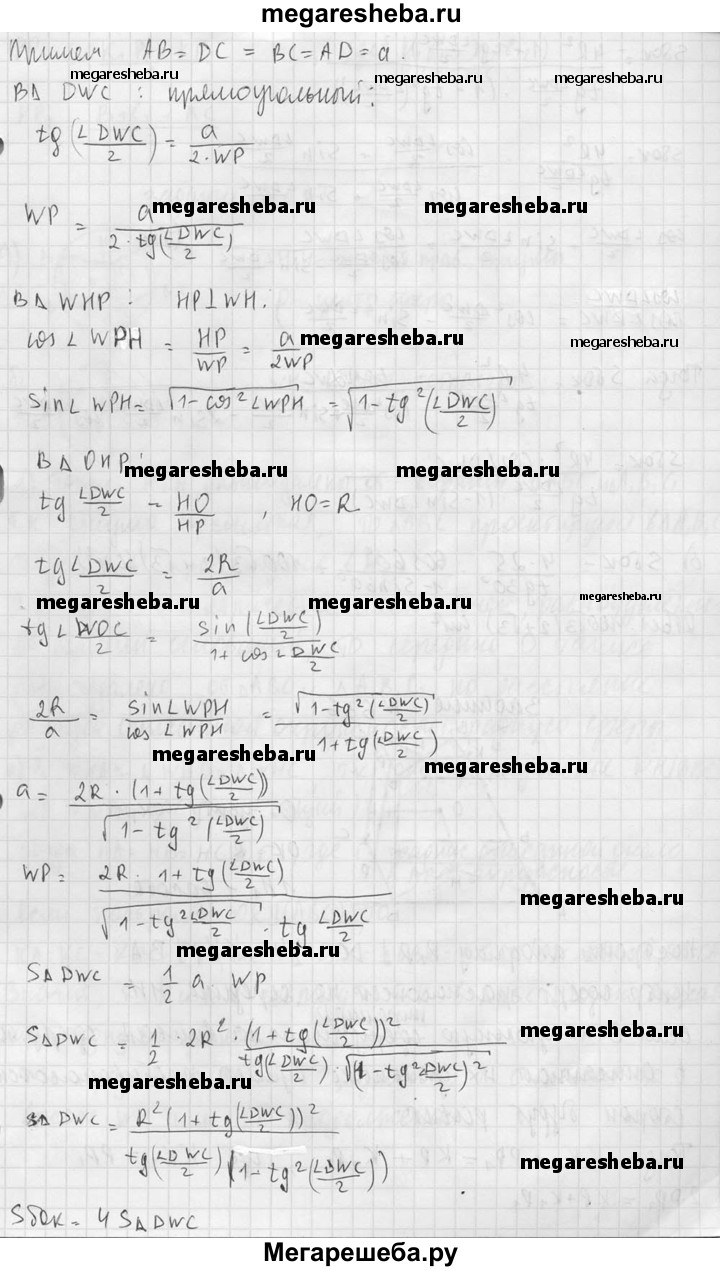 megaresheba.ru
Примем AB = DC = BC = AD = a.
megaresheba.ru megaresheba.ru
В Δ DWC : прямоугольный:
tg(∠DWC/2) = a/(2·WP)
WP = a/(2·tg(∠DWC/2))
megaresheba.ru megaresheba.ru
В Δ WHP : HP⊥WH.
cos∠WPH = HP/WP = a/2WP
megaresheba.ru megaresheba.ru
sin∠WPH = √(1-cos²∠WPH) = √(1-tg²(∠DWC/2))
В Δ OHP:
megaresheba.ru megaresheba.ru
tg ∠DWC/2 = HO/HP , HO=R
tg ∠DWC/2 = 2R/a
megaresheba.ru megaresheba.ru megaresheba.ru
tg∠WOC/2 = sin(∠DWC/2)/(1+cos∠DWC/2)
2R/a = sin∠WPH/cos∠WPH = √(1-tg²(∠DWC/2))/(1+tg(∠DWC/2))
megaresheba.ru megaresheba.ru
a = 2R·(1+tg(∠DWC/2))/√(1-tg²(∠DWC/2))
WP = 2R·1+tg(∠DWC/2)/(√(1-tg²∠DWC/2)·tg ∠DWC/2)
megaresheba.ru
megaresheba.ru
SΔDWC = 1/2 a WP
SΔDWC = 1/2·2R²·(1+tg(∠DWC/2))²/(tg(∠DWC/2)·√(1-tg²∠DWC/2)²)
megaresheba.ru
megaresheba.ru
SΔDWC = R²(1+tg(∠DWC/2))²/(tg(∠DWC/2)(1-tg²(∠DWC/2)))
megaresheba.ru
Sбок = 4SΔDWC
Мегарешеба.ру